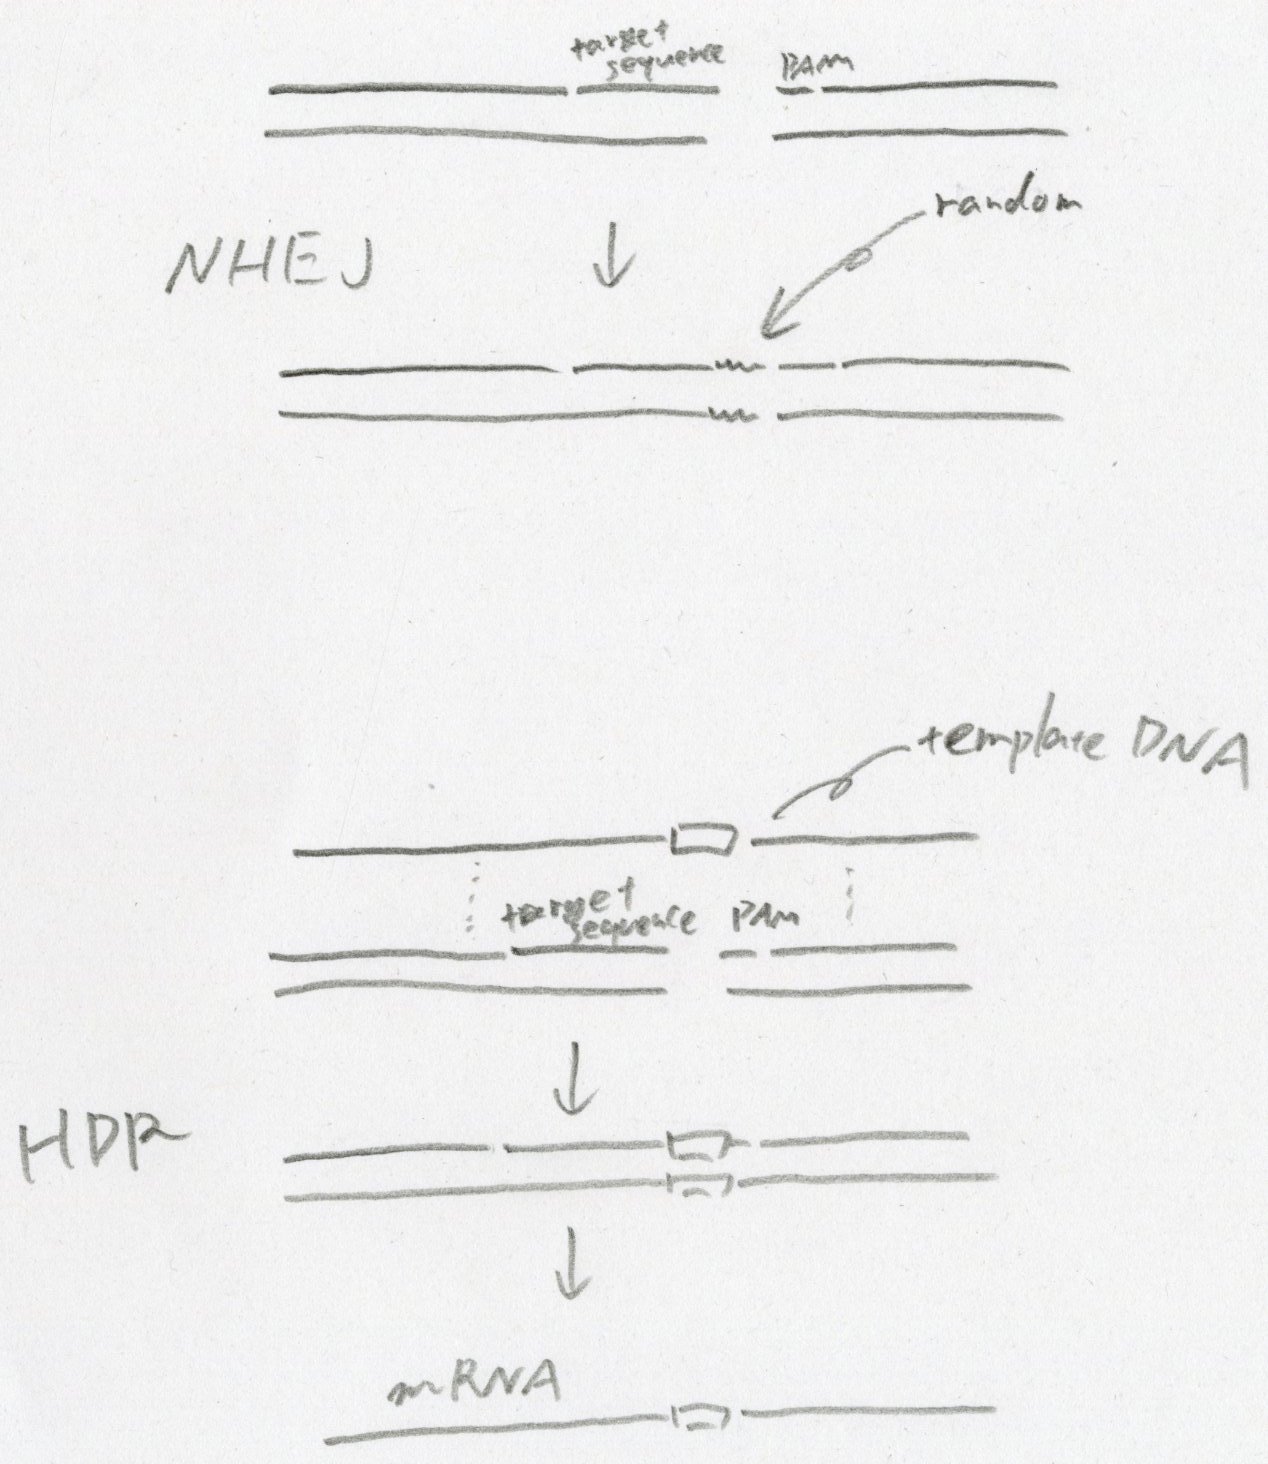 target
sequence
PAM
random
NHEJ
template DNA
target
sequence
PAM
HDR
mRNA